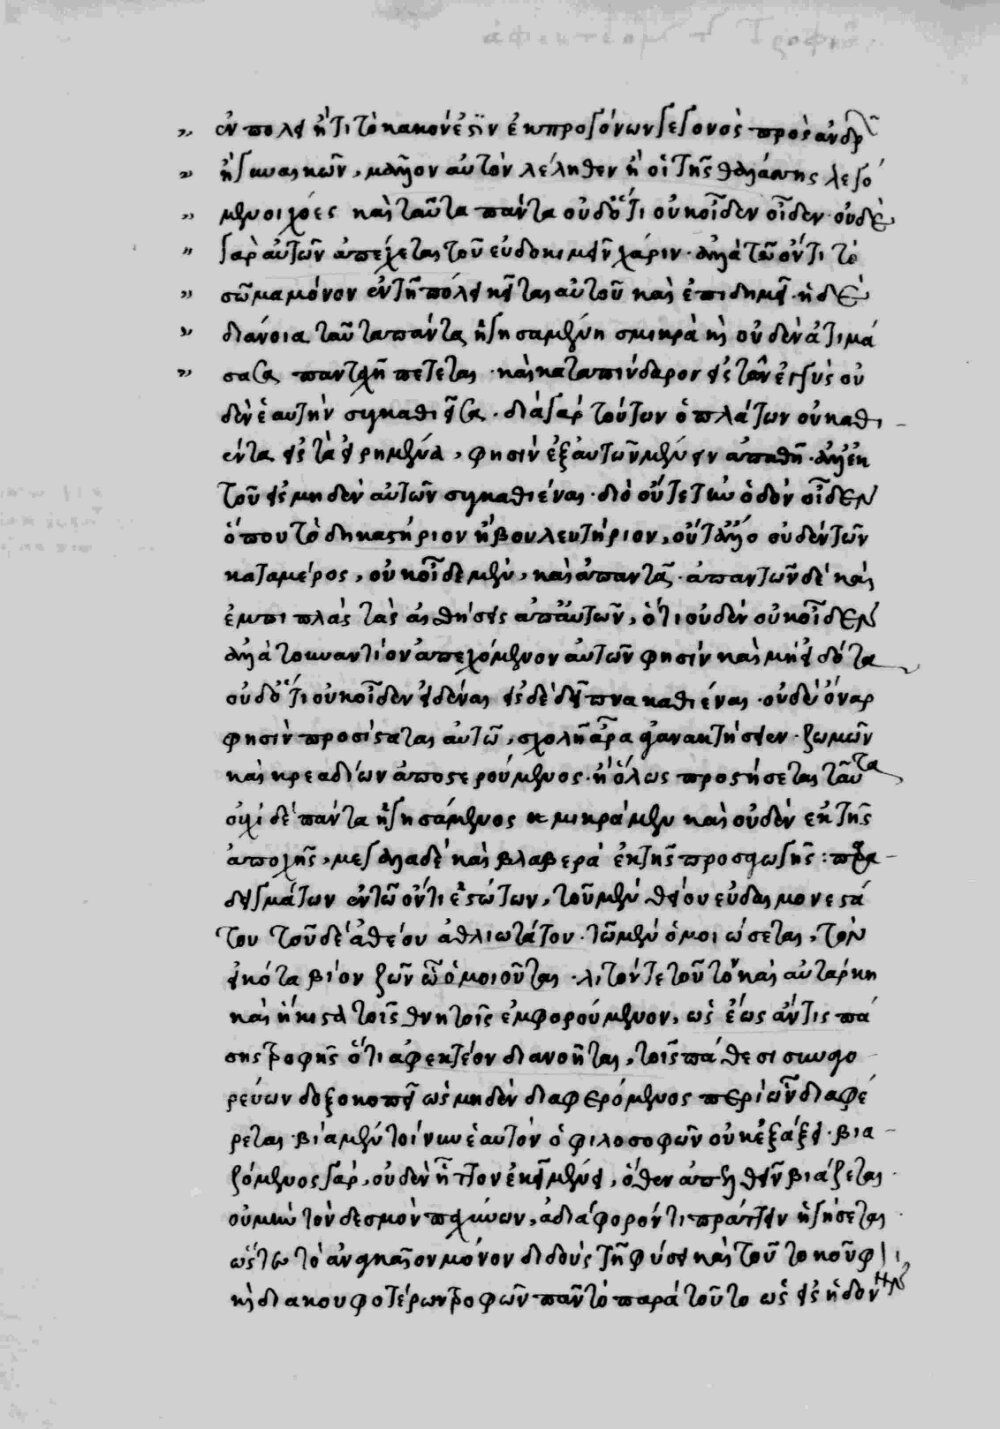 ἐν πόλει ἢ τί τῳ κακόν ἐστιν ἐκ προγόνων γεγονὸς πρὸς ἀνδρῶν
ἢ γυναικῶν, μᾶλλον αὐτὸν λέληθεν ἢ οἱ τῆς θαλάττης λεγό
μενοι χόες καὶ ταῦτα πάντα οὐδ' ὅτι οὐκ οἶδεν οἶδεν· οὐδὲ
γὰρ αὐτῶν ἀπέχεται τοῦ εὐδοκιμεῖν χάριν· ἀλλὰ τῷ ὄντι τὸ
σῶμα μόνον ἐν τῇ πόλει κεῖται αὐτοῦ καὶ ἐπιδημεῖ· ἡ δὲ
διάνοια ταῦτα πάντα ἡγησαμένη σμικρὰ καὶ οὐδὲν ἀτιμά
σασα πανταχῇ πέτεται· καὶ κατὰ πίνδαρον εἰς τῶν ἐγγὺς οὐ
δὲν ἑαυτὴν συγκαθιεῖσα· διὰ γὰρ τούτων ὁ πλάτων οὐ καθι
έντα εἰς τὰ εἰρημένα, φησὶν ἐξ αὐτῶν μένειν ἀπαθῆ· ἀλλ' ἐκ
τοῦ εἰς μηδὲν αὐτῶν συγκαθιέναι· διὸ οὔτε τὴν ὁδὸν οἶδεν
ὅπου τὸ δικαστήριον ἢ βουλευτήριον, οὔτ' ἄλλο οὐδὲν τῶν
κατὰ μέρος, οὐκ οἶδε μὲν, καὶ ἀπαντᾷ· ἀπαντῶν δὲ καὶ
ἐμπιπλὰς τὰς αἰσθήσεις ἀπ' αὐτῶν, ὅτι οὐδὲν οὐκ οἶδεν
ἀλλὰ τοὐναντίον ἀπεχόμενον αὐτῶν φησὶν καὶ μὴ εἰδότα
οὐδ' ὅτι οὐκ οἶδεν εἰδέναι εἰς δὲ δεῖπνα καθιέναι· οὐδ' ὄναρ
φησὶν προσίσταται αὐτῷ, σχολῇ ἄρα ἀγανακτήσειεν· ζωμῶν
καὶ κρεαδίων ἀποστερούμενος· ἢ ὅλως προσήσεται ταῦτα
οὐχὶ δὲ πάντα ἡγησάμενος μικρὰ μὲν καὶ οὐδὲν ἐκ τῆς
ἀποχῆς, μεγάλα δὲ καὶ βλαβερὰ ἐκ τῆς προσαγωγῆς: παρα
δειγμάτων ἐν τῷ ὄντι ἑστώτων, τοῦ μὲν θείου εὐδαιμονεστά
του τοῦ δὲ ἀθέου ἀθλιωτάτου· τῷ μὲν ὁμοιώσεται, τὸν
εἰκότα βίον ζῶν ᾧ ὁμοιοῦται· λιτόν τε τοῦτον καὶ αὐτάρκη
καὶ ἥκιστα τοῖς θνητοῖς ἐμφορούμενον, ὡς ἕως ἄν τις πά
σης τροφῆς ὅτι ἀφεκτέον διανοῆται, τοῖς πάθεσι συνηγο
ρεύων δοξοκοπεῖ ὡς μηδὲν διαφερόμενος περὶ ὧν διαφέ
ρεται· βίᾳ μὲν τοίνυν ἑαυτὸν ὁ φιλοσοφῶν οὐκ ἐξάξει· βια
ζόμενος γὰρ, οὐδὲν ἧττον ἐκεῖ μένει, ὅθεν ἀπελθεῖν βιάζεται·
οὐ μὴν τὸν δεσμὸν παχύνων, ἀδιάφορόν τι πράττειν ἡγήσεται·
ὥστε τὸ ἀναγκαῖον μόνον διδοὺς τῇ φύσει καὶ τοῦτο κοῦφ
καὶ διὰ κουφοτέρων τροφῶν πᾶν τὸ παρὰ τοῦτο ὡς εἰς ἡδονὴν